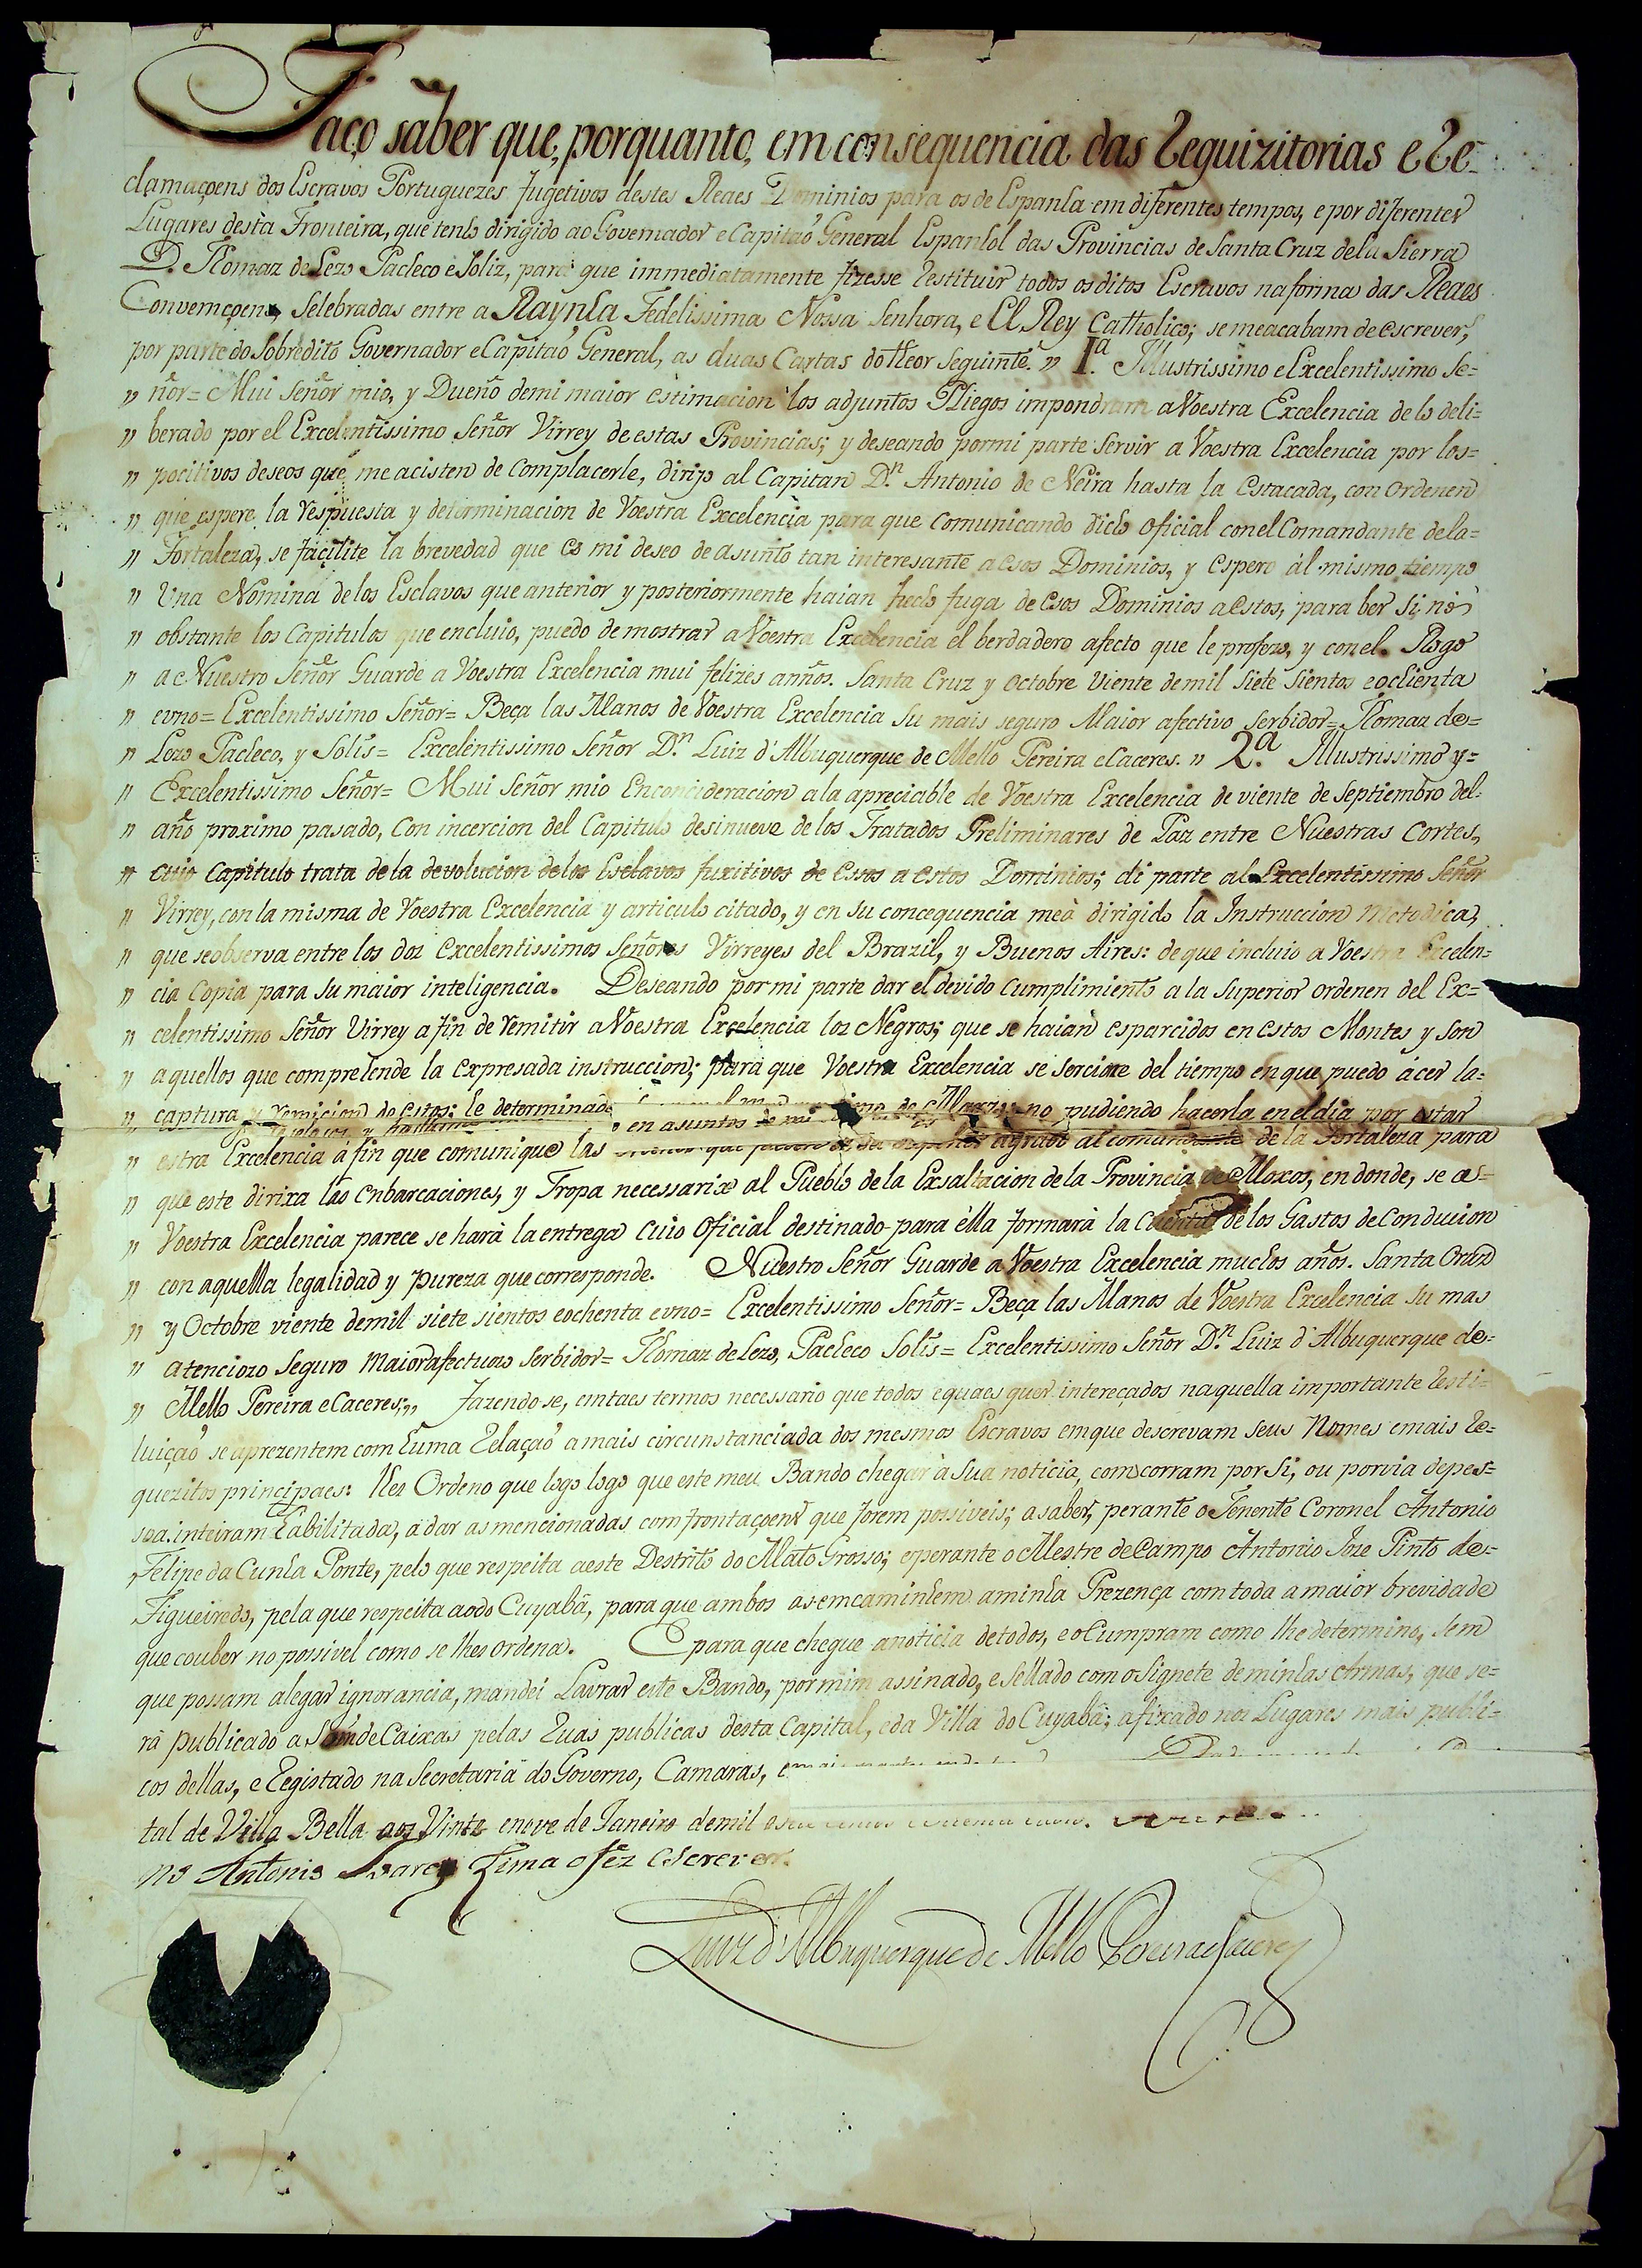 Faço saber que, porquanto, em consequencia das Requizitorias e Re=
clamaçoens dos Escravos Portuguezes fugetivos destes Reaes Dominios para os de Espanha em diferentes tempos, e por diferentes
Lugares desta Fronteira, que tenho dirigido ao Governador e Capitaõ General Espanhol das Provincias de Santa Cruz de la Sierra
D. Thomaz de Lezo Pacheco e Soliz, para que immediatamente fizesse restituir todos os ditos Escravos na forma das Reaes
Convemçoens, Selebradas entre a Raynha Fedelissima Nossa Senhora, e El Rey Catholico; se me acabam de escrever,
por parte do Sobredito Governador e Capitaõ General, as duas Cartas do theor Seguinte. „ 1.ª Illustrissimo e Excelentissimo Se=
„ ñor= Mui Señor mio, y Dueño de mi maior estimacion los adjuntos Pliegos impondram a Voestra Excelencia de lo deli=
„ berado por el Excelentissimo Señor Virrey de estas Provincias; y deseando por mi parte Servir a Voestra Excelencia por los=
„ pocitivos deseos que me acisten de Complacerle, dirijo al Capitan D.n Antonio de Neira hasta la Estacada, con Ordenen
„ que espere la respuesta y determinacion de Voestra Excelencia para que Comunicando dicho Oficial con el Comandante de la=
„ Fortaleza, se facilite la brevedad que es mi deseo de asunto tan interesante a esos Dominios, y espero al mismo tiempo
„ Una Nomina de los Esclavos que anterior y posteriormente haian hecho fuga de esos Dominios a estos, para ber si no
„ obstante los Capitulos que encluio, puedo demostrar a Voestra Excelencia el berdadero afecto que le profeso, y con el. Rogo
„ a Nuestro Señor Guarde a Voestra Excelencia mui felizes annos. Santa Cruz y Octobre Viente de mil Siete Sientos e ochenta
„ e vno= Excelentissimo Señor= Beça las Manos de Voestra Excelencia Su mais seguro Maior afectivo Serbidor= Thomaz de=
„ Lezo Pacheco, y Solis= Excelentissimo Señor D.n Luiz d'Albuquerque de Mello Pereira e Caceres. „ 2.ª Illustrissimo y=
„ Excelentissimo Señor= Mui Señor mio En concideracion a la apreciable de Voestra Excelencia de viente de Septiembro del=
„ año proximo pasado, Con incercion del Capitulo desinueve de los Tratados Preliminares de Paz entre Nuestras Cortes,
„ cuio Capitulo trata de la devolucion de los Esclavos fuxitivos de Essos a estos Dominios; di parte al Excelentissimo Señor
„ Virrey, con la misma de Voestra Excelencia y articulo citado, y en su concequencia me à dirigido la Instruccion Metodica,
„ que se observa entre los dos Excelentissimos Señores Virreyes del Brazil, y Buenos Aires: de que incluio a Voestra Excelen=
„ cia Copia para su maior inteligencia. Deseando por mi parte dar el devido Cumplimiento a la Superior Ordenen del Ex=
„ celentissimo Señor Virrey a fin de remitir a Voestra Excelencia los Negros; que se haian esparcidos en estos Montes y son
„ aquellos que comprehende la expresada instruccion; para que Voestra Excelencia se sercione del tiempo en que puedo àcer la=
„ captura y remicion de estos: he determinado de Marzo: no pudiendo hacerla en el dia por estar
en asuntos de mi
„ estra Excelencia à fin que comunique las agrado al comandante de la Fortaleza para
„ que este dirixa las enbarcaciones, y Tropa necessarix al Pueblo de la Exsaltacion de la Provincia de Moxos, en donde, se as=
„ Voestra Excelencia parece se harà la entrega cuio Oficial destinado para èlla formarà la Cuenta de los Gastos de Conducion
„ con aquella legalidad y pureza que corresponde. Nuestro Señor Guarde a Voestra Excelencia muchos años. Santa Cruz
„ y Octobre viente de mil siete sientos e ochenta e vno= Excelentissimo Señor= Beça las Manos de Voestra Excelencia Su mas
„ atenciozo Seguro Maior afectuozo Serbidor= Thomaz de Lezo, Pacheco Solis= Excelentissimo Señor D.n Luiz d'Albuquerque de=
„ Mello Pereira e Caceres;„ Fazendo se, em taes termos necessario que todos e quaes quer intereçados na quella importante resti=
tuiçaõ se aprezentem com huma relaçaõ a mais circunstanciada dos mesmos Escravos em que descrevam seus Nomes e mais re=
quezitos principaes: lhes Ordeno que logo logo que este meu Bando chegar à sua noticia, comcorram por Si, ou por via de pes=
soa inteiram habilitada, a dar as mencionadas comfrontaçoens que forem possiveis; a saber, perante o Tenente Coronel Antonio
Felipe da Cunha Ponte, pelo que respeita a este Destrito do Mato Grosso; e perante o Mestre de Campo Antonio Joze Pinto de=
Figueiredo, pela que respeita ao do Cuyabà, para que ambos as emcaminhem a minha Prezença com toda a maior brevidade
que couber no possivel como se lhes ordena. E para que chegue a noticia de todos, e o Cumpram como lhe determino, Sem
que possam alegar ignorancia, mandei Lavrar este Bando, por mim assinado, e Sellado com o Signete de minhas Armas, que se=
rà publicado a Som de Caixas pelas ruas publicas desta Capital, e da Villa do Cuyabà; afixado nos Lugares mais publi=
cos dellas, e registado na Secretaria do Governo, Camaras, e mais
tal de Villa Bella aos Vinte e nove de Janeiro de mil
no Antonio Soares Lima o fez escrever.
Luiz d'Albuquerque de Mello Pereira e Caceres